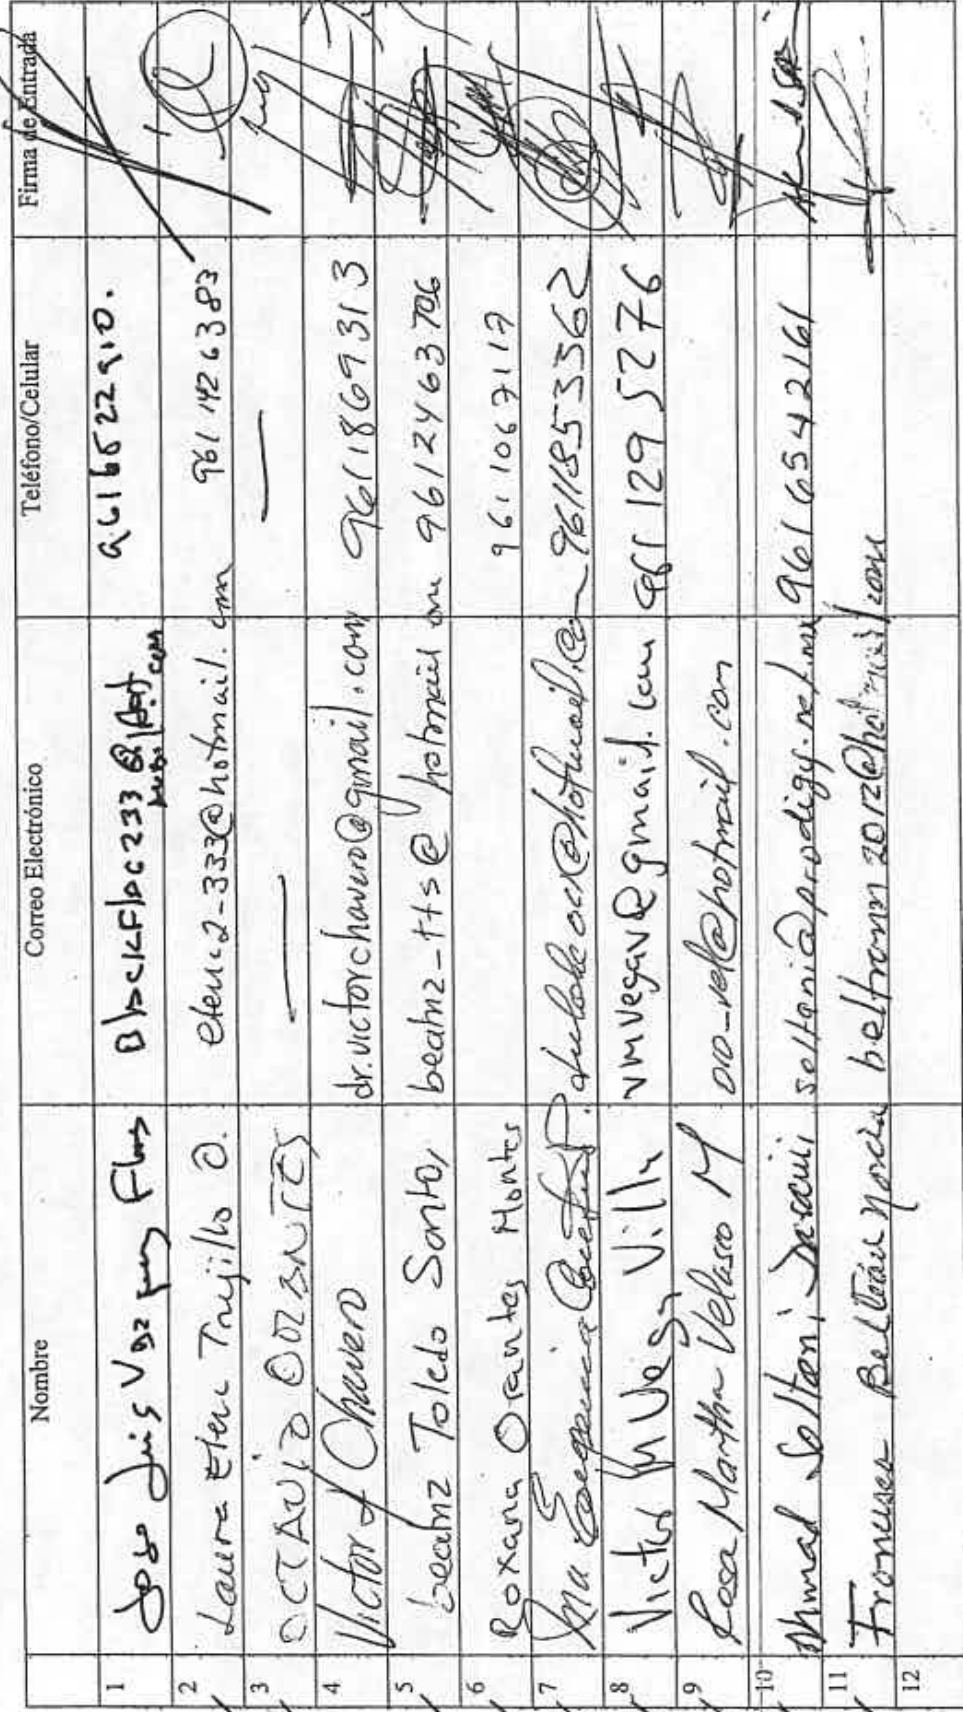 Nombre Correo Electrónico Teléfono/Celular Firma de Entrada
1 Jose Luis Flores 9616522910.
2 Laura Elena Trujillo O. elena2-333@hotmail.com 961 142 6383
3 OCTAVIO — —
4 Victor Chavero dr.victorchavero@gmail.com 9611869313
5 Beatriz Toledo Santos beatriz-tts@hotmail.com 9612463706
6 Roxana Orantes Montes 961 1067117
7 Ma 9611853362
8 Victor Ml Vega Villa vmvegav@gmail.com 961 129 5276
9 Rosa Martha Velasco M oro-vel@hotmail.com
10 Ahmad Soltani soltani@prodigy.net.mx 961 654 2161
11 Francisco Beltrán beltrann2012@hotmail.com
12